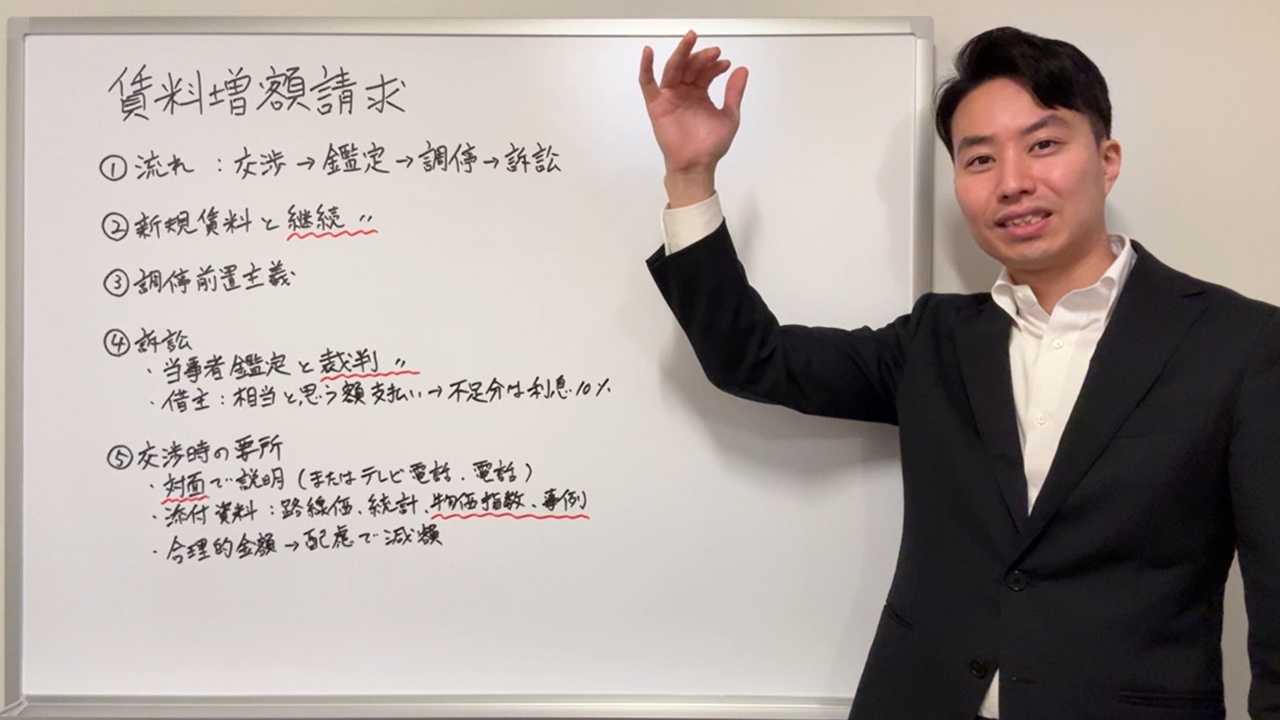 賃料増額請求
①流れ：交渉→鑑定→調停→訴訟
②新規賃料と継続〃
③調停前置主義
④訴訟
・当事者鑑定と裁判〃
・借主：相当と思う額支払い→不足分は利息10%
⑤交渉時の要所
・対面で説明(またはテレビ電話、電話)
・添付資料：路線価、統計、物価指数、事例
・合理的金額→配慮で減額